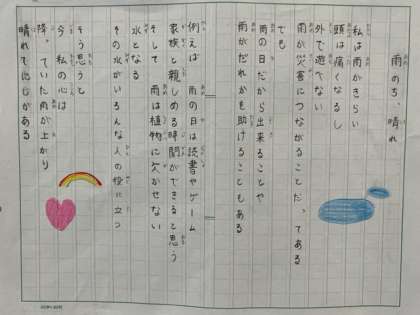 雨のち、晴れ
私は雨がきらい
頭は痛くなるし
外で遊べない
雨が災害につながることだってある
でも
雨の日だから出来ることや
雨がだれかを助けることもある
例えば 雨の日は読書やゲーム
家族と親しめる時間ができると思う
そして 雨は植物に欠かせない
水となる
その水がいろんな人の役に立つ
そう思うと
今 私の心は
降っていた雨が上がり
晴れてにじがある